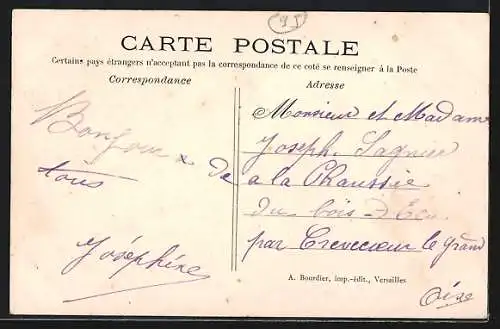 95
CARTE POSTALE
Certains pays étrangers n'acceptant pas la correspondance de ce coté se renseigner à la Poste
Correspondance
Adresse
Bonjour a
tous
Joséphine
Monsieur et Madame
Joseph Lagnier
De a la Chaussée
Du bois D Ecu
par Crevecoeur le Grand
Oise
A. Bourdier, imp.-édit., Versailles